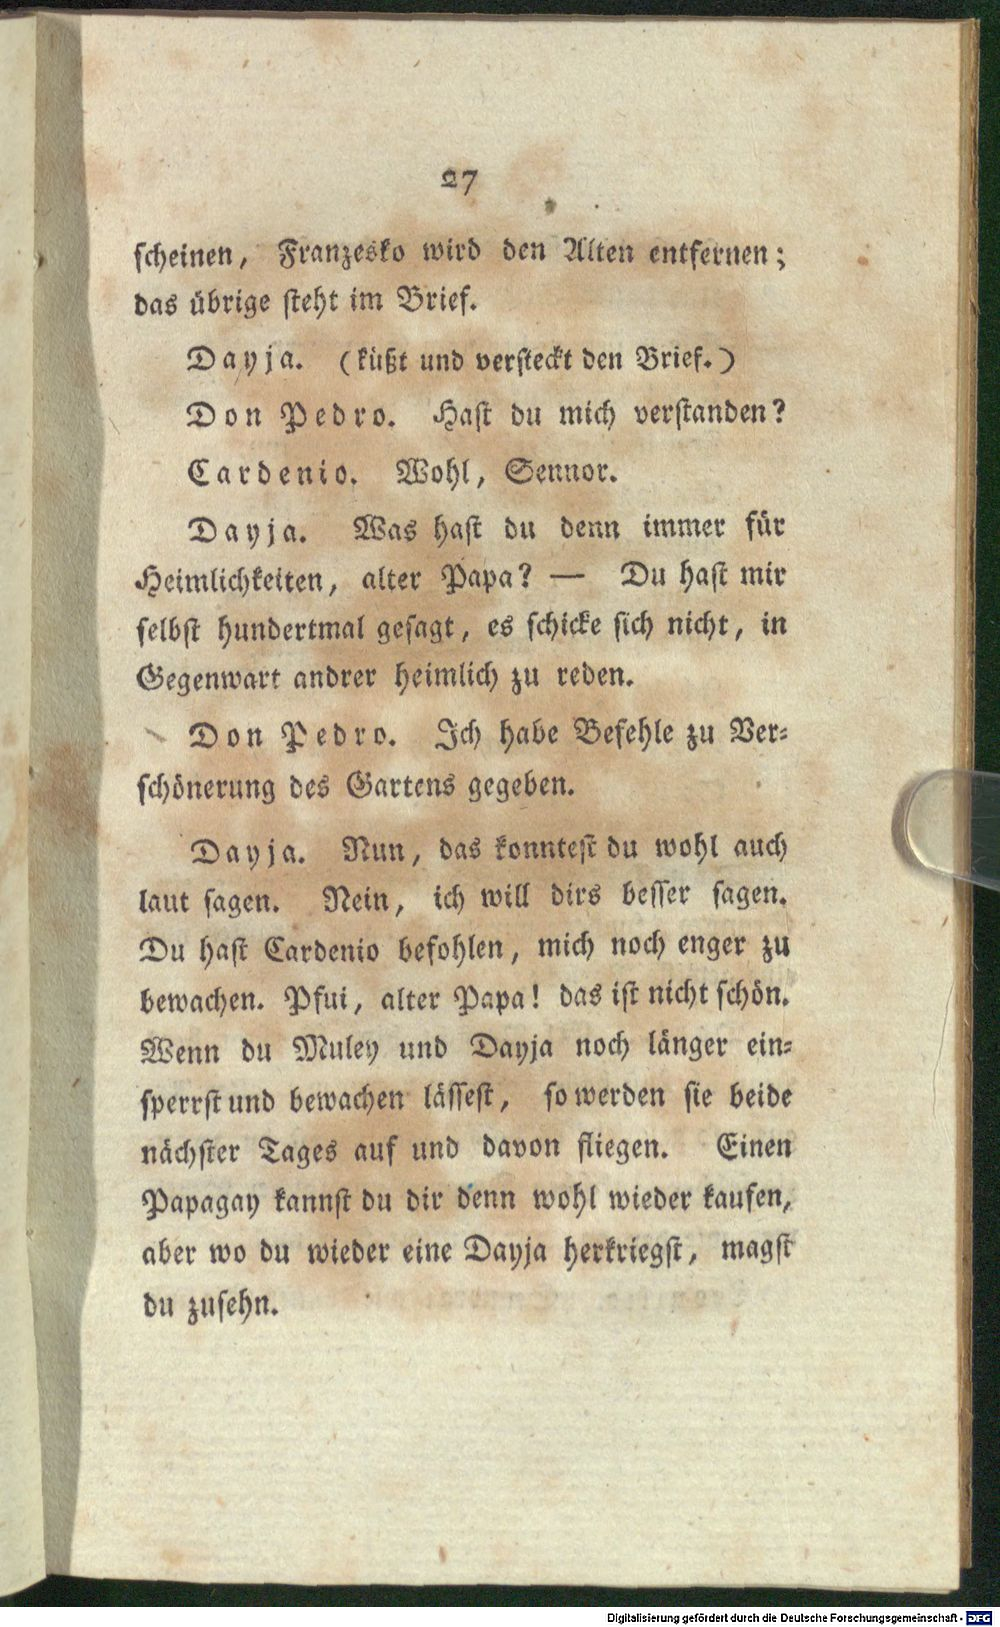 27
scheinen, Franzesko wird den Alten entfernen;
das übrige steht im Brief.
Dayja. (küßt und versteckt den Brief.)
Don Pedro. Hast du mich verstanden?
Cardenio. Wohl, Sennor.
Dayja. Was hast du denn immer für
Heimlichkeiten, alter Papa? — Du hast mir
selbst hundertmal gesagt, es schicke sich nicht, in
Gegenwart andrer heimlich zu reden.
Don Pedro. Ich habe Befehle zu Ver-
schönerung des Gartens gegeben.
Dayja. Nun, das konntest du wohl auch
laut sagen. Nein, ich will dirs besser sagen.
Du hast Cardenio befohlen, mich noch enger zu
bewachen. Pfui, alter Papa! das ist nicht schön.
Wenn du Muley und Dayja noch länger ein-
sperrst und bewachen lässest, so werden sie beide
nächster Tages auf und davon fliegen. Einen
Papagay kannst du dir denn wohl wieder kaufen,
aber wo du wieder eine Dayja herkriegst, magst
du zusehn.
Digitalisierung gefördert durch die Deutsche Forschungsgemeinschaft - DFG